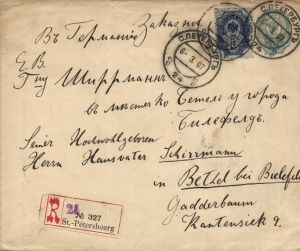 Въ Германію Заказное
С.ПЕТЕРБУРГЪ
6·3·07
Е.В.
Гну Ширрманъ
въ местечко Бетель у города
Билефельдъ.
Seiner Hochwohlgeboren
Herrn Hausvater Schirrmann
in Bethel bei Bielefeld
Gadderbaum
Kantensiek 9.
R
24
№ 327
St.-Pétersbourg